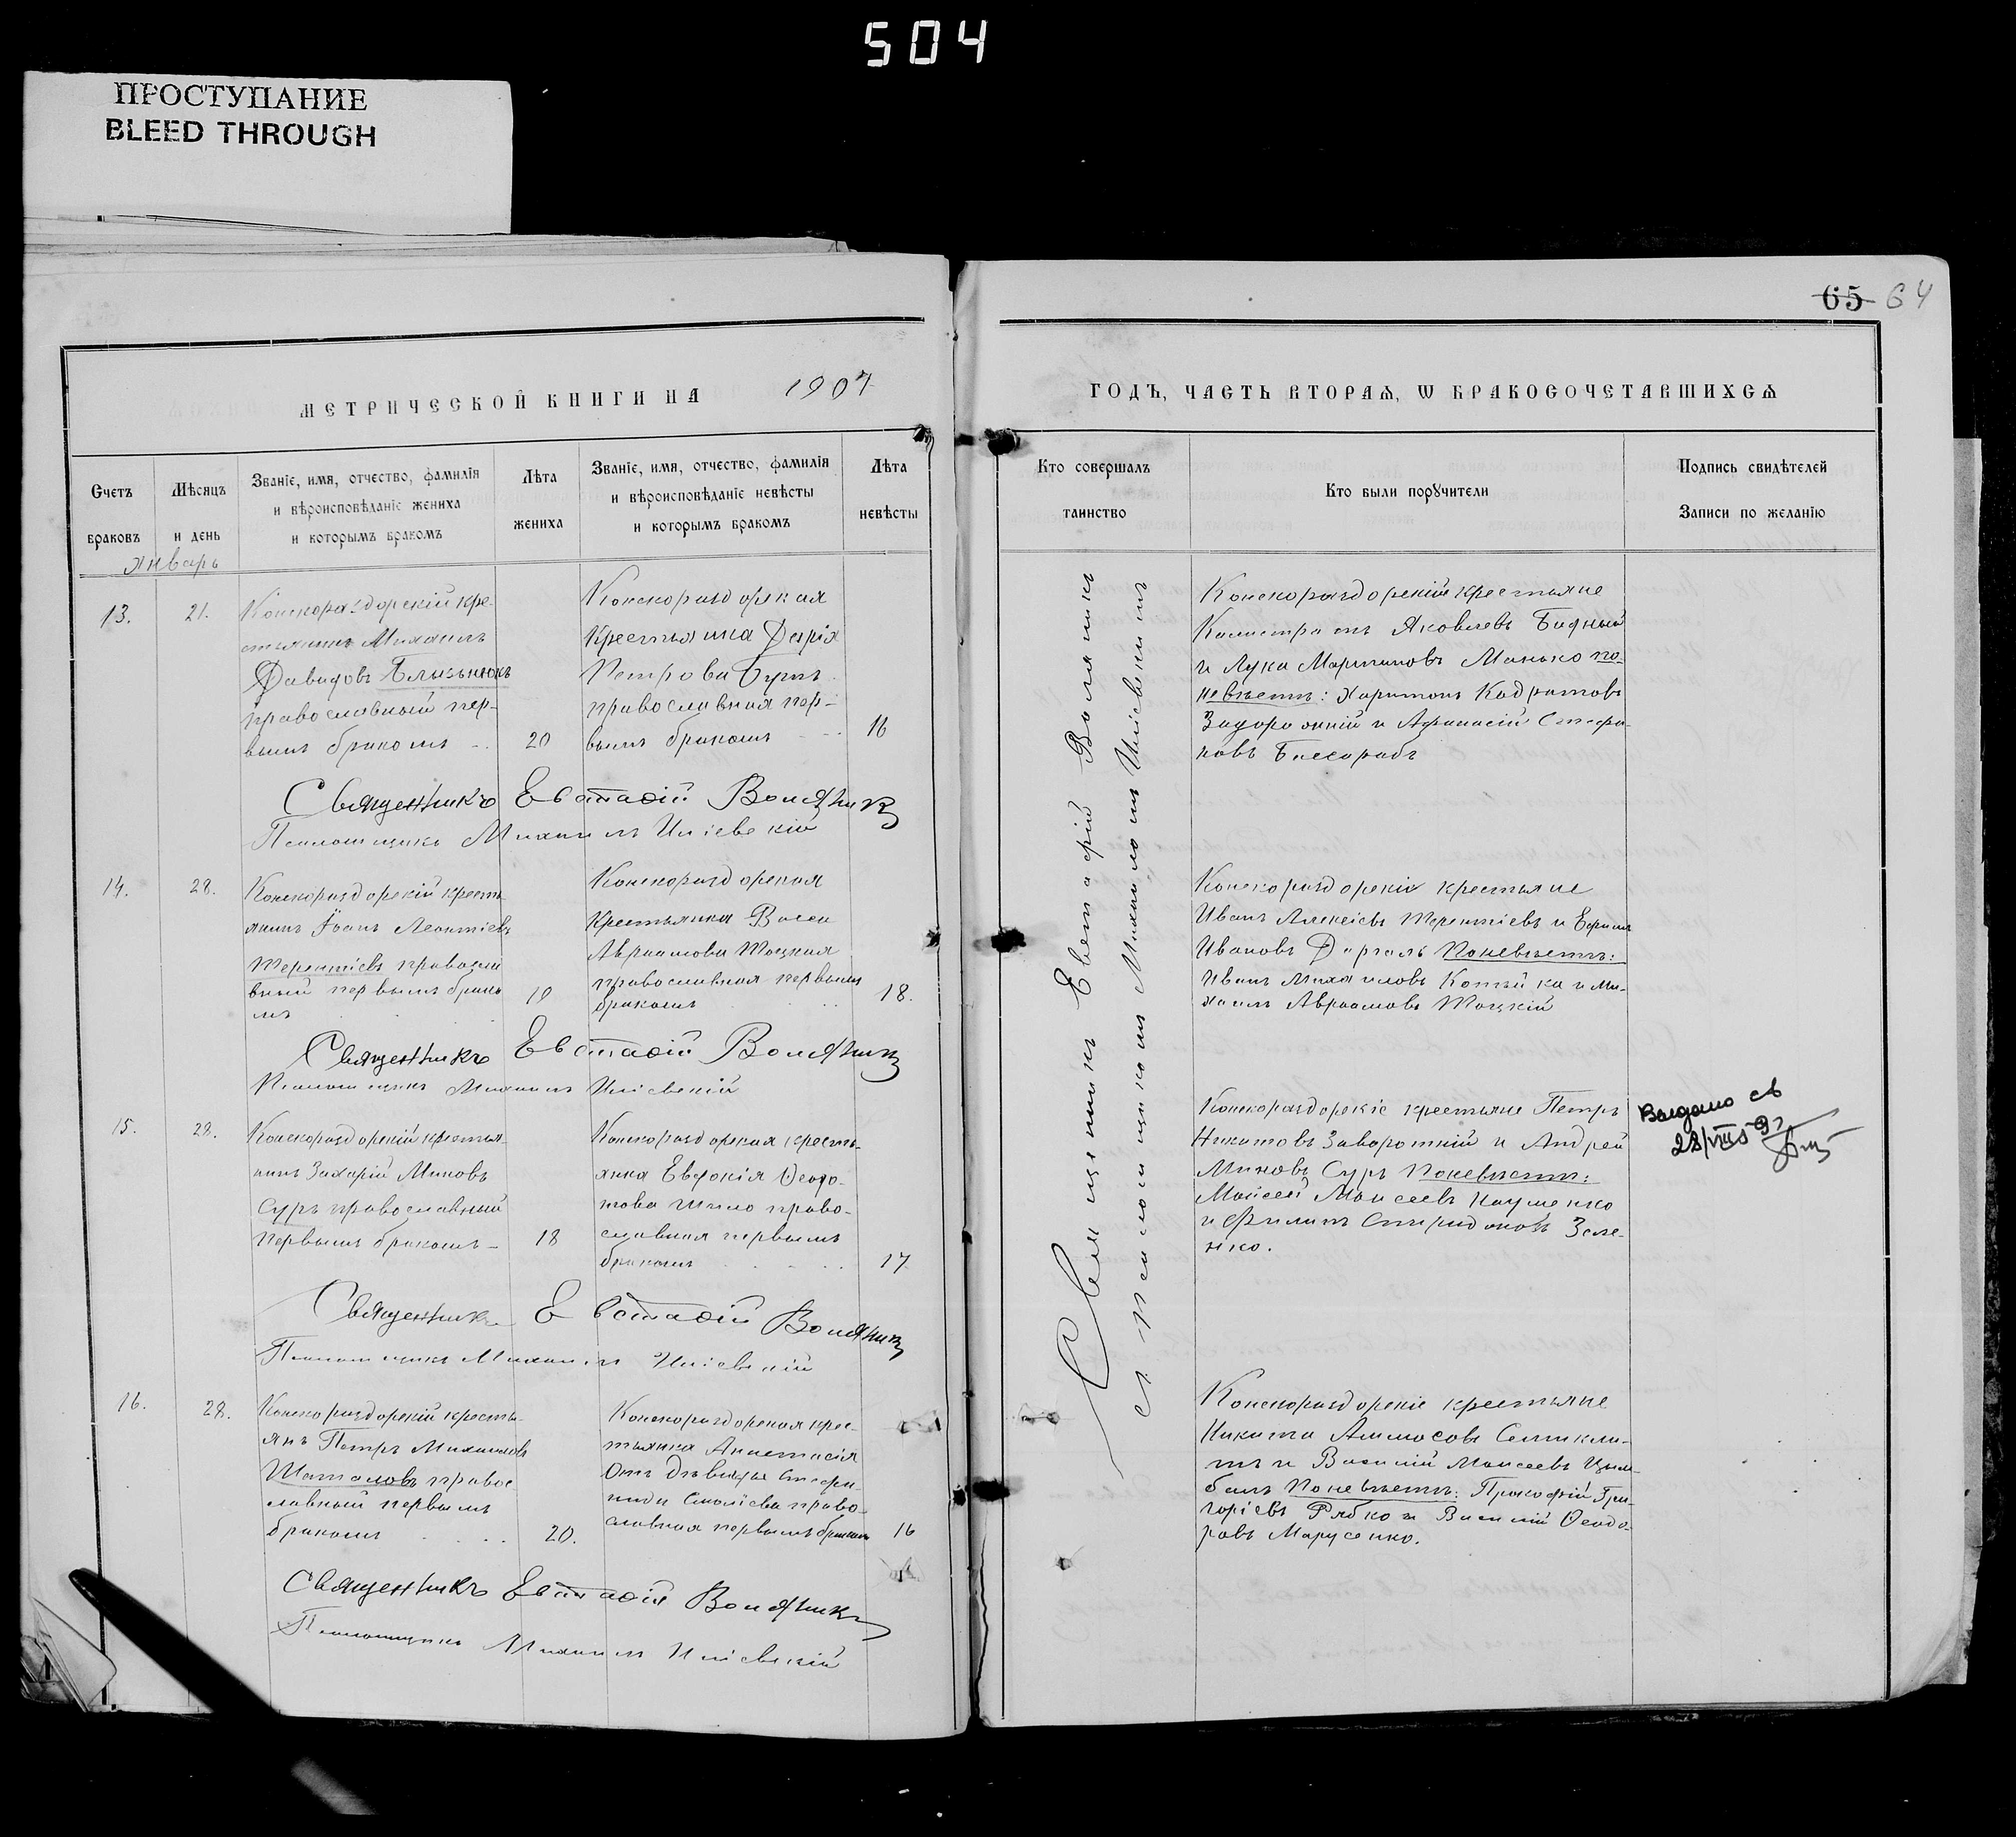 504
ПРОСТУПАНИЕ
BLEED THROUGH
65 64
МЕТРИЧЕСКОЙ КНИГИ НА 1907
ГОДЪ, ЧАСТЬ ВТОРАѦ, Ѡ БРАКОСОЧЕТАВШИХСѦ
Счетъ браковъ
Мѣсяцъ и день
Званіе, имя, отчество, фамилія
и вѣроисповѣданіе жениха
и которымъ бракомъ
Лѣта жениха
Званіе, имя, отчество, фамилія
и вѣроисповѣданіе невѣсты
и которымъ бракомъ
Лѣта невѣсты
Кто совершалъ таинство
Кто были порꙋчители
Подпись свидѣтелей
Записи по желанію
Январь
13.
21.
Конскораздорскій кре-
стьянинъ Михаилъ
Давидовъ Близьнюкъ
православный пер-
вымъ бракомъ
20
Конскораздорская
Крестьянка Дарія
Петрова
православная пер-
вымъ бракомъ
16
Конскораздорскій крестьяне
Яковлевъ Бидный
и Лука Мартиновъ Манько по
невѣстѣ: Харитонъ Кодратовъ
Задорожній и Афанасій Стефа-
новъ
Священникъ Евстафій Воляникъ
Псаломщикъ Михаилъ Иліевскій
14.
28.
Конскораздорскій кресть-
янинъ Іоанъ Леонтіевъ
Терентіевъ правосла
вный первымъ брако
мъ
19
Конскораздорская
Крестьянка Васса
Авраамова Тоцкая
православная первымъ
бракомъ
18.
Конскораздорскіе крестьяне
Иванъ Алексіевъ Терентіевъ и Ефимъ
Ивановъ Дергаль Поневѣстѣ:
Иванъ Михаиловъ Котъйка и Ми-
хаилъ Авраамовъ Тоцкій
Священникъ Евстафій Воляникъ
Псаломщикъ Михаилъ Иліевскій
15.
28.
Конскораздорскій крестья-
нинъ Захарій Миновъ
Суръ православный
первымъ бракомъ
18
Конскораздорская кресть-
янка Евдокія Ѳеодо-
това Шило право-
славная первымъ
бракомъ
17
Конскораздорскіе крестьяне Петръ
Никитовъ Заворотній и Андрей
Миновъ Суръ Поневѣстѣ:
Моисей Моисеевъ Науменко
и Филипъ Спиридоновъ Зеле-
нко.
Выдано св
28/VIII 59г
Священникъ Евстафій Воляникъ
Псаломщикъ Михаилъ Иліевскій
16.
28.
Конскораздорскій кресть-
янъ Петръ Михаиловъ
Шаталовъ правос
лавный первымъ
бракомъ
20.
Конскораздорская крес-
тьянка Анастасія
Отъ дѣвицы Стефа-
ниды право-
славная первымъ бракомъ
16
Конскораздорскіе крестьяне
Никита Аммосовъ Семикли-
тъ и Василій Моисеевъ Цым-
балъ Поневѣстѣ: Прокофій Гри-
горіевъ Рябко и Василій Ѳеодо-
ровъ Марусенко.
Священникъ Евстафій Воляникъ
Псаломщикъ Михаилъ Иліевскій
Священникъ Евстафій Воляникъ
съ псаломщикомъ Михаиломъ Иліевскимъ